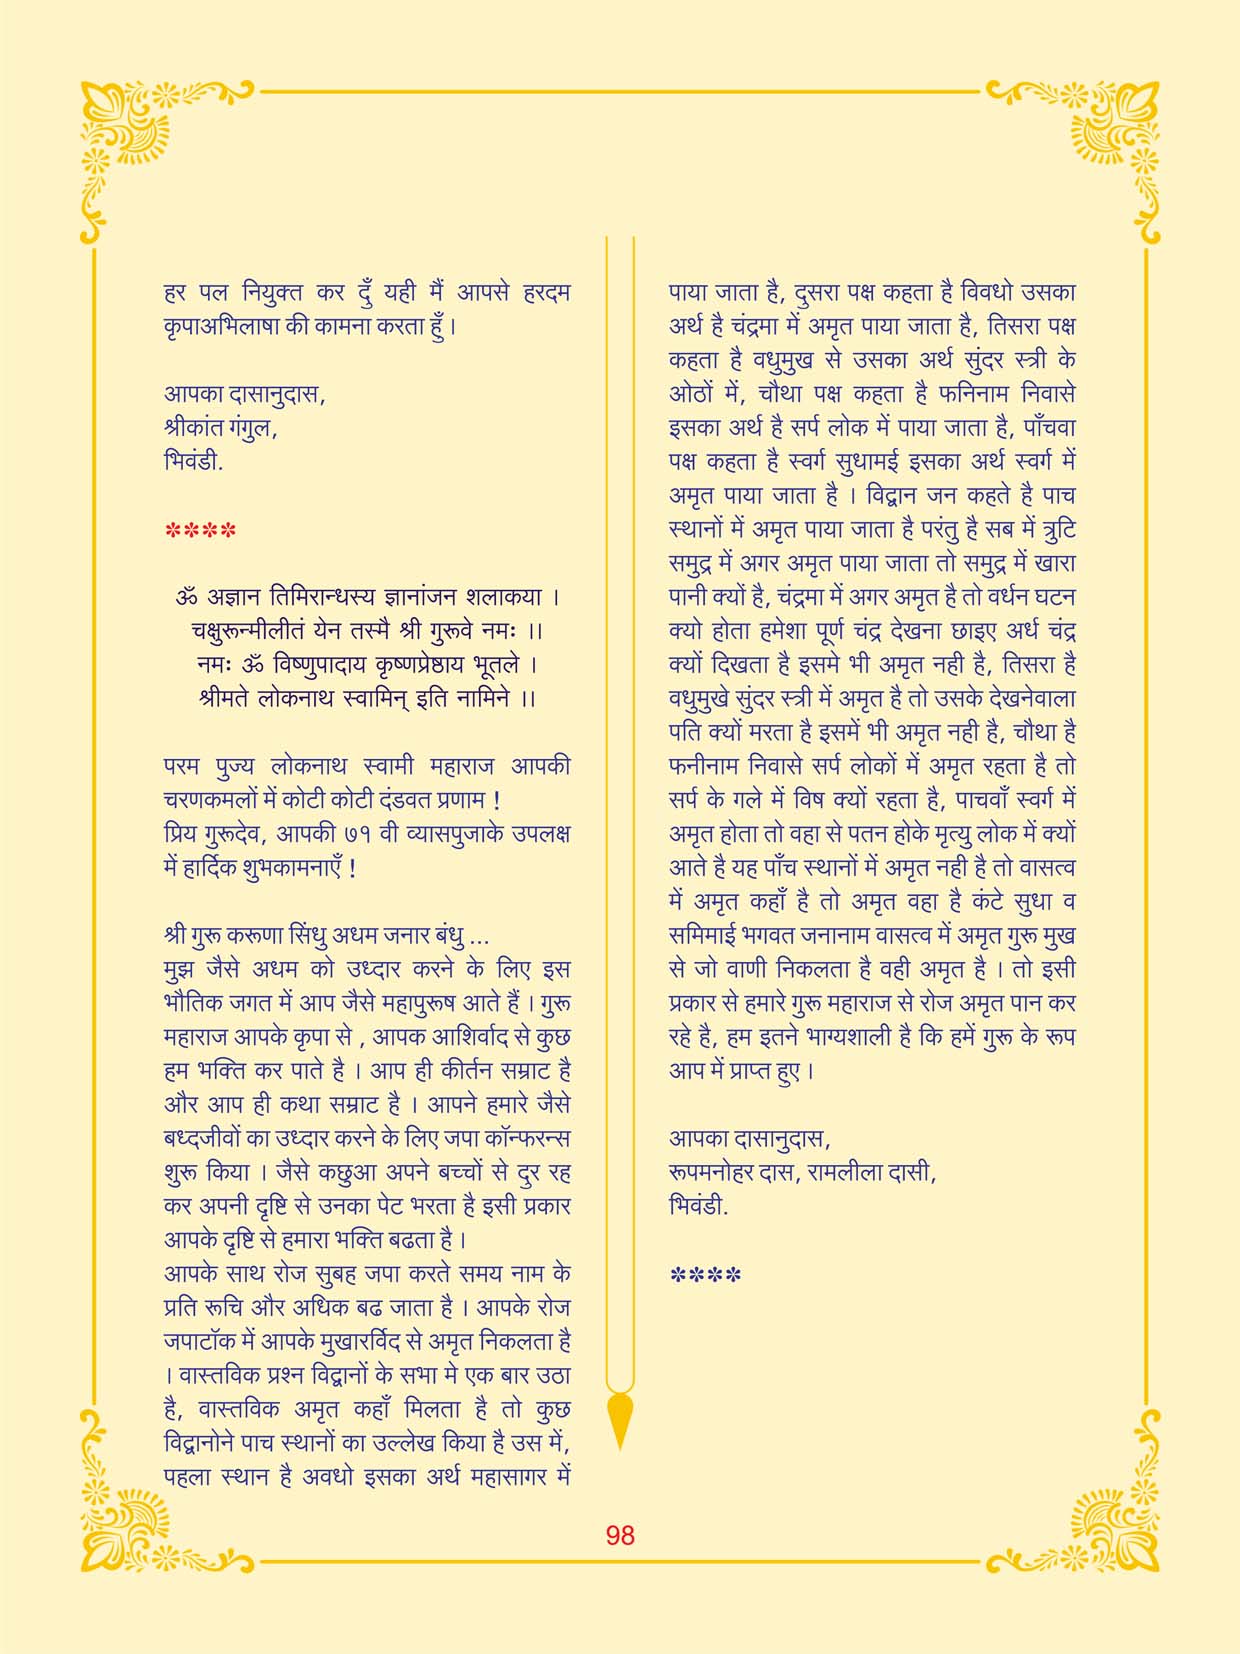 हर पल नियुक्त कर दुँ यही मैं आपसे हरदम
कृपाअभिलाषा की कामना करता हुँ ।
आपका दासानुदास,
श्रीकांत गंगुल,
भिवंडी.
****
ॐ अज्ञान तिमिरान्धस्य ज्ञानांजन शलाकया ।
चक्षुरून्मीलीतं येन तस्मै श्री गुरूवे नमः ।।
नमः ॐ विष्णुपादाय कृष्णप्रेष्ठाय भूतले ।
श्रीमते लोकनाथ स्वामिन् इति नामिने ।।
परम पुज्य लोकनाथ स्वामी महाराज आपकी
चरणकमलों में कोटी कोटी दंडवत प्रणाम !
प्रिय गुरूदेव, आपकी ७१ वी व्यासपुजाके उपलक्ष
में हार्दिक शुभकामनाएँ !
श्री गुरू करूणा सिंधु अधम जनार बंधु ...
मुझ जैसे अधम को उध्दार करने के लिए इस
भौतिक जगत में आप जैसे महापुरूष आते हैं । गुरू
महाराज आपके कृपा से , आपक आशिर्वाद से कुछ
हम भक्ति कर पाते है । आप ही कीर्तन सम्राट है
और आप ही कथा सम्राट है । आपने हमारे जैसे
बध्दजीवों का उध्दार करने के लिए जपा कॉन्फरन्स
शुरू किया । जैसे कछुआ अपने बच्चों से दुर रह
कर अपनी दृष्टि से उनका पेट भरता है इसी प्रकार
आपके दृष्टि से हमारा भक्ति बढता है ।
आपके साथ रोज सुबह जपा करते समय नाम के
प्रति रूचि और अधिक बढ जाता है । आपके रोज
जपाटॉक में आपके मुखारर्विद से अमृत निकलता है
। वास्तविक प्रश्न विद्वानों के सभा मे एक बार उठा
है, वास्तविक अमृत कहाँ मिलता है तो कुछ
विद्वानोने पाच स्थानों का उल्लेख किया है उस में,
पहला स्थान है अवधो इसका अर्थ महासागर में
पाया जाता है, दुसरा पक्ष कहता है विवधो उसका
अर्थ है चंद्रमा में अमृत पाया जाता है, तिसरा पक्ष
कहता है वधुमुख से उसका अर्थ सुंदर स्त्री के
ओठों में, चौथा पक्ष कहता है फनिनाम निवासे
इसका अर्थ है सर्प लोक में पाया जाता है, पाँचवा
पक्ष कहता है स्वर्ग सुधामई इसका अर्थ स्वर्ग में
अमृत पाया जाता है । विद्वान जन कहते है पाच
स्थानों में अमृत पाया जाता है परंतु है सब में त्रुटि
समुद्र में अगर अमृत पाया जाता तो समुद्र में खारा
पानी क्यों है, चंद्रमा में अगर अमृत है तो वर्धन घटन
क्यो होता हमेशा पूर्ण चंद्र देखना छाइए अर्ध चंद्र
क्यों दिखता है इसमे भी अमृत नही है, तिसरा है
वधुमुखे सुंदर स्त्री में अमृत है तो उसके देखनेवाला
पति क्यों मरता है इसमें भी अमृत नही है, चौथा है
फनीनाम निवासे सर्प लोकों में अमृत रहता है तो
सर्प के गले में विष क्यों रहता है, पाचवाँ स्वर्ग में
अमृत होता तो वहा से पतन होके मृत्यु लोक में क्यों
आते है यह पाँच स्थानों में अमृत नही है तो वासत्व
में अमृत कहाँ है तो अमृत वहा है कंटे सुधा व
समिमाई भगवत जनानाम वासत्व में अमृत गुरू मुख
से जो वाणी निकलता है वही अमृत है । तो इसी
प्रकार से हमारे गुरू महाराज से रोज अमृत पान कर
रहे है, हम इतने भाग्यशाली है कि हमें गुरू के रूप
आप में प्राप्त हुए ।
आपका दासानुदास,
रूपमनोहर दास, रामलीला दासी,
भिवंडी.
****
98